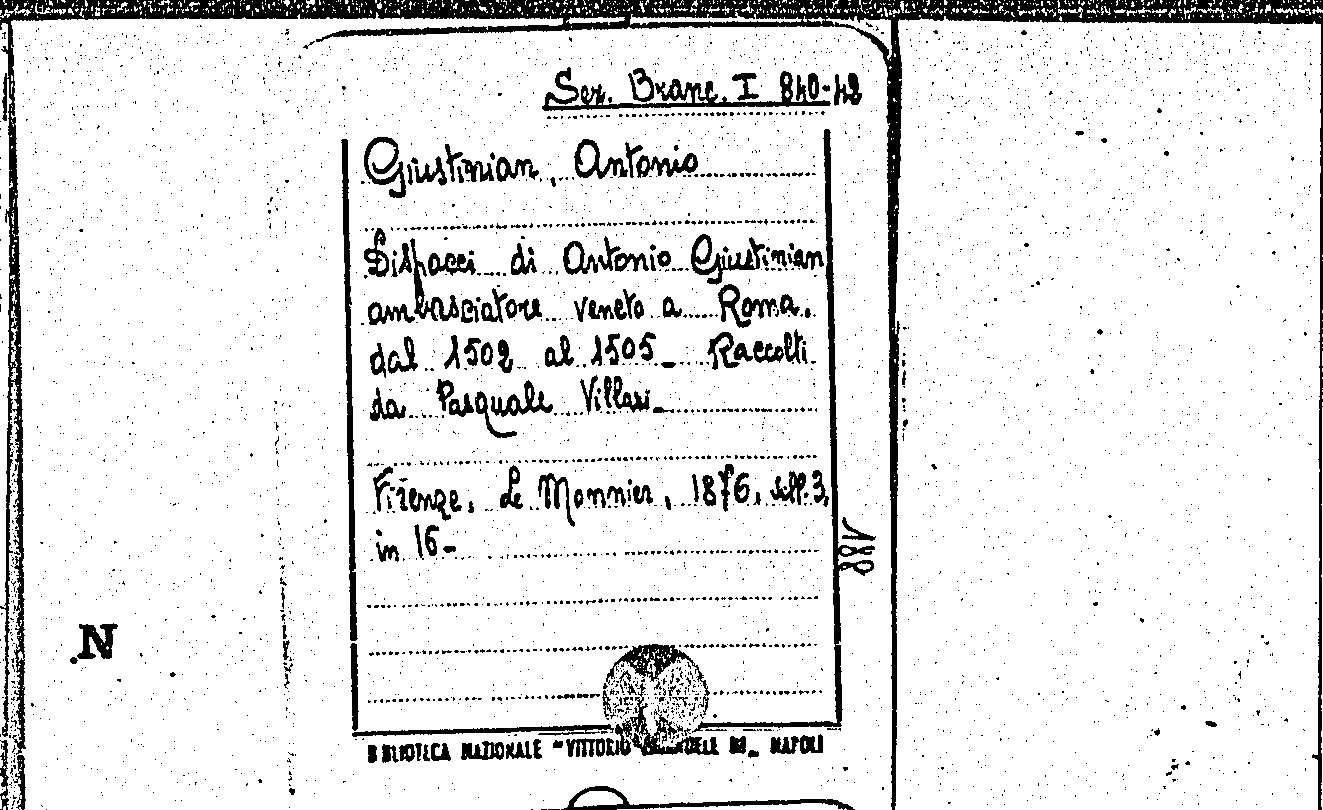 Sez. Branc. I 840-42
Giustinian, Antonio
Dispacci di Antonio Giustinian
ambasciatore veneto a Roma,
dal 1502 al 1505_ Raccolti
da Pasquale Villari_
Firenze, Le Monnier, 1876, voll. 3,
in 16-
188
N
BIBLIOTECA NAZIONALE "VITTORIO EMANUELE III_ NAPOLI